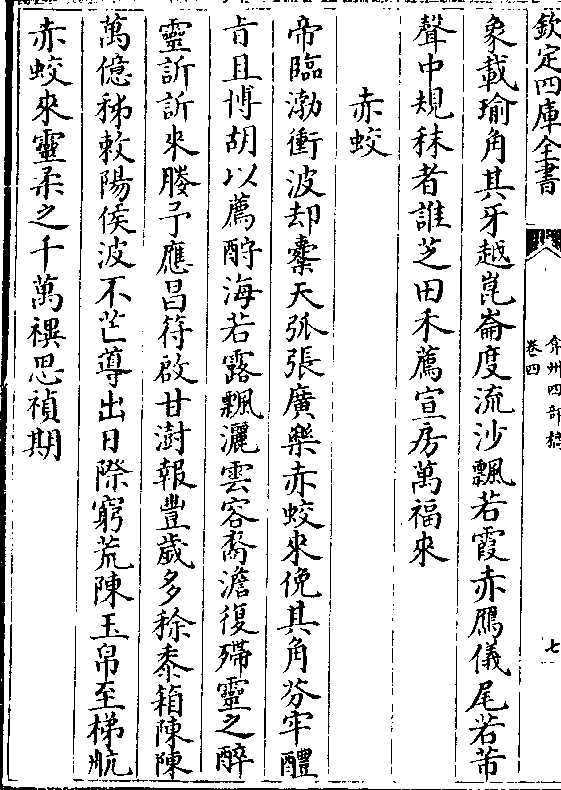 欽定四庫全書
弇州四部稿
卷四
七
象載瑜角其牙越崑崙度流沙飄若霞赤鴈儀尾若芾
聲中規秣者誰芝田禾薦宣房萬福來
赤蛟
帝臨渤衝波却櫜天弧張廣樂赤蛟來俛其角芬牢醴
肓且博胡以薦酹海若露飄灑雲容裔澹復殢靈之醉
靈訢訢來媵予應昌符啟甘澍報豐歲多稌黍箱陳陳
萬億秭敕陽侯波不芒導出日際窮荒陳玉帛至梯航
赤蛟來靈柔之千萬禩思禎期